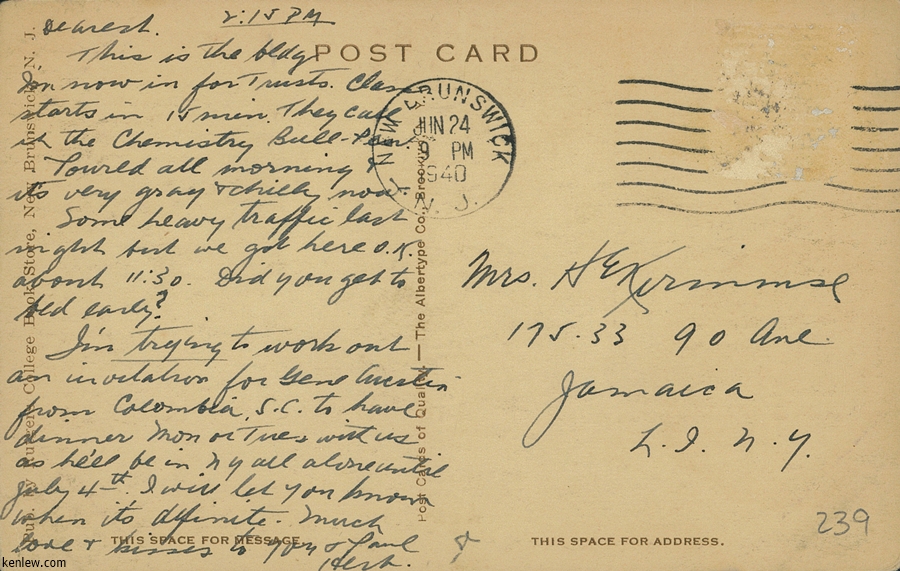 2:15 PM
Dearest.
This is the bldg
I'm now in for Trusts. Class
starts in 15 min. They call
it the Chemistry Bull-Pen.
Toured all morning &
it's very gray & chilly now.
Some heavy traffic last
night but we got here O.K.
about 11:30. Did you get to
bed early?
I'm trying to work out
an invitation for Gene Austin
from Colombia, S.C. to have
dinner Mon or Tues with us
as he'll be in NY all alone until
July 4th. I will let you know
when its definite. Much
love & kisses to you & Paul
Herb.
POST CARD
NEW BRUNSWICK
JUN 24
PM
1940
N. J.
Mrs. H E
175-33 90 Ave.
Jamaica
L. I. N. Y.
Pub. by Rutgers College Book Store, New Brunswick, N. J.
Post Cards of Quality — The Albertype Co., Brooklyn
THIS SPACE FOR MESSAGE.
THIS SPACE FOR ADDRESS.
239
kenlew.com